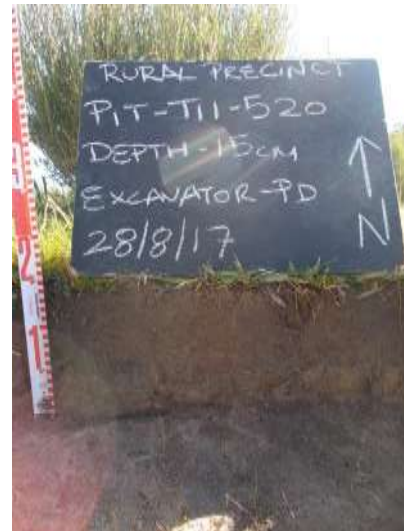 RURAL PRECINCT
PIT-T11-520
DEPTH-15CM
EXCAVATOR-PD
28/8/17
N
2
1